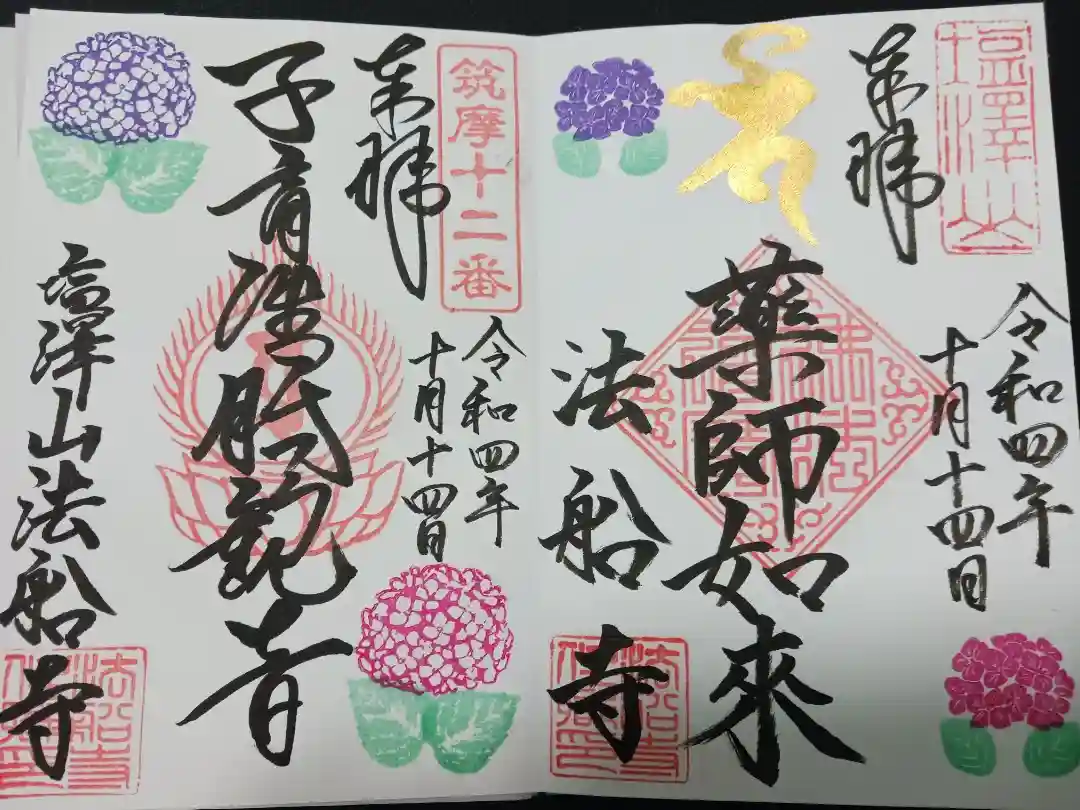 塩澤山
奉拝
令和四年
十月十四日
薬師如來
法船寺
筑摩十二番
奉拝
令和四年
十月十四日
子育准胝観音
塩澤山法船寺